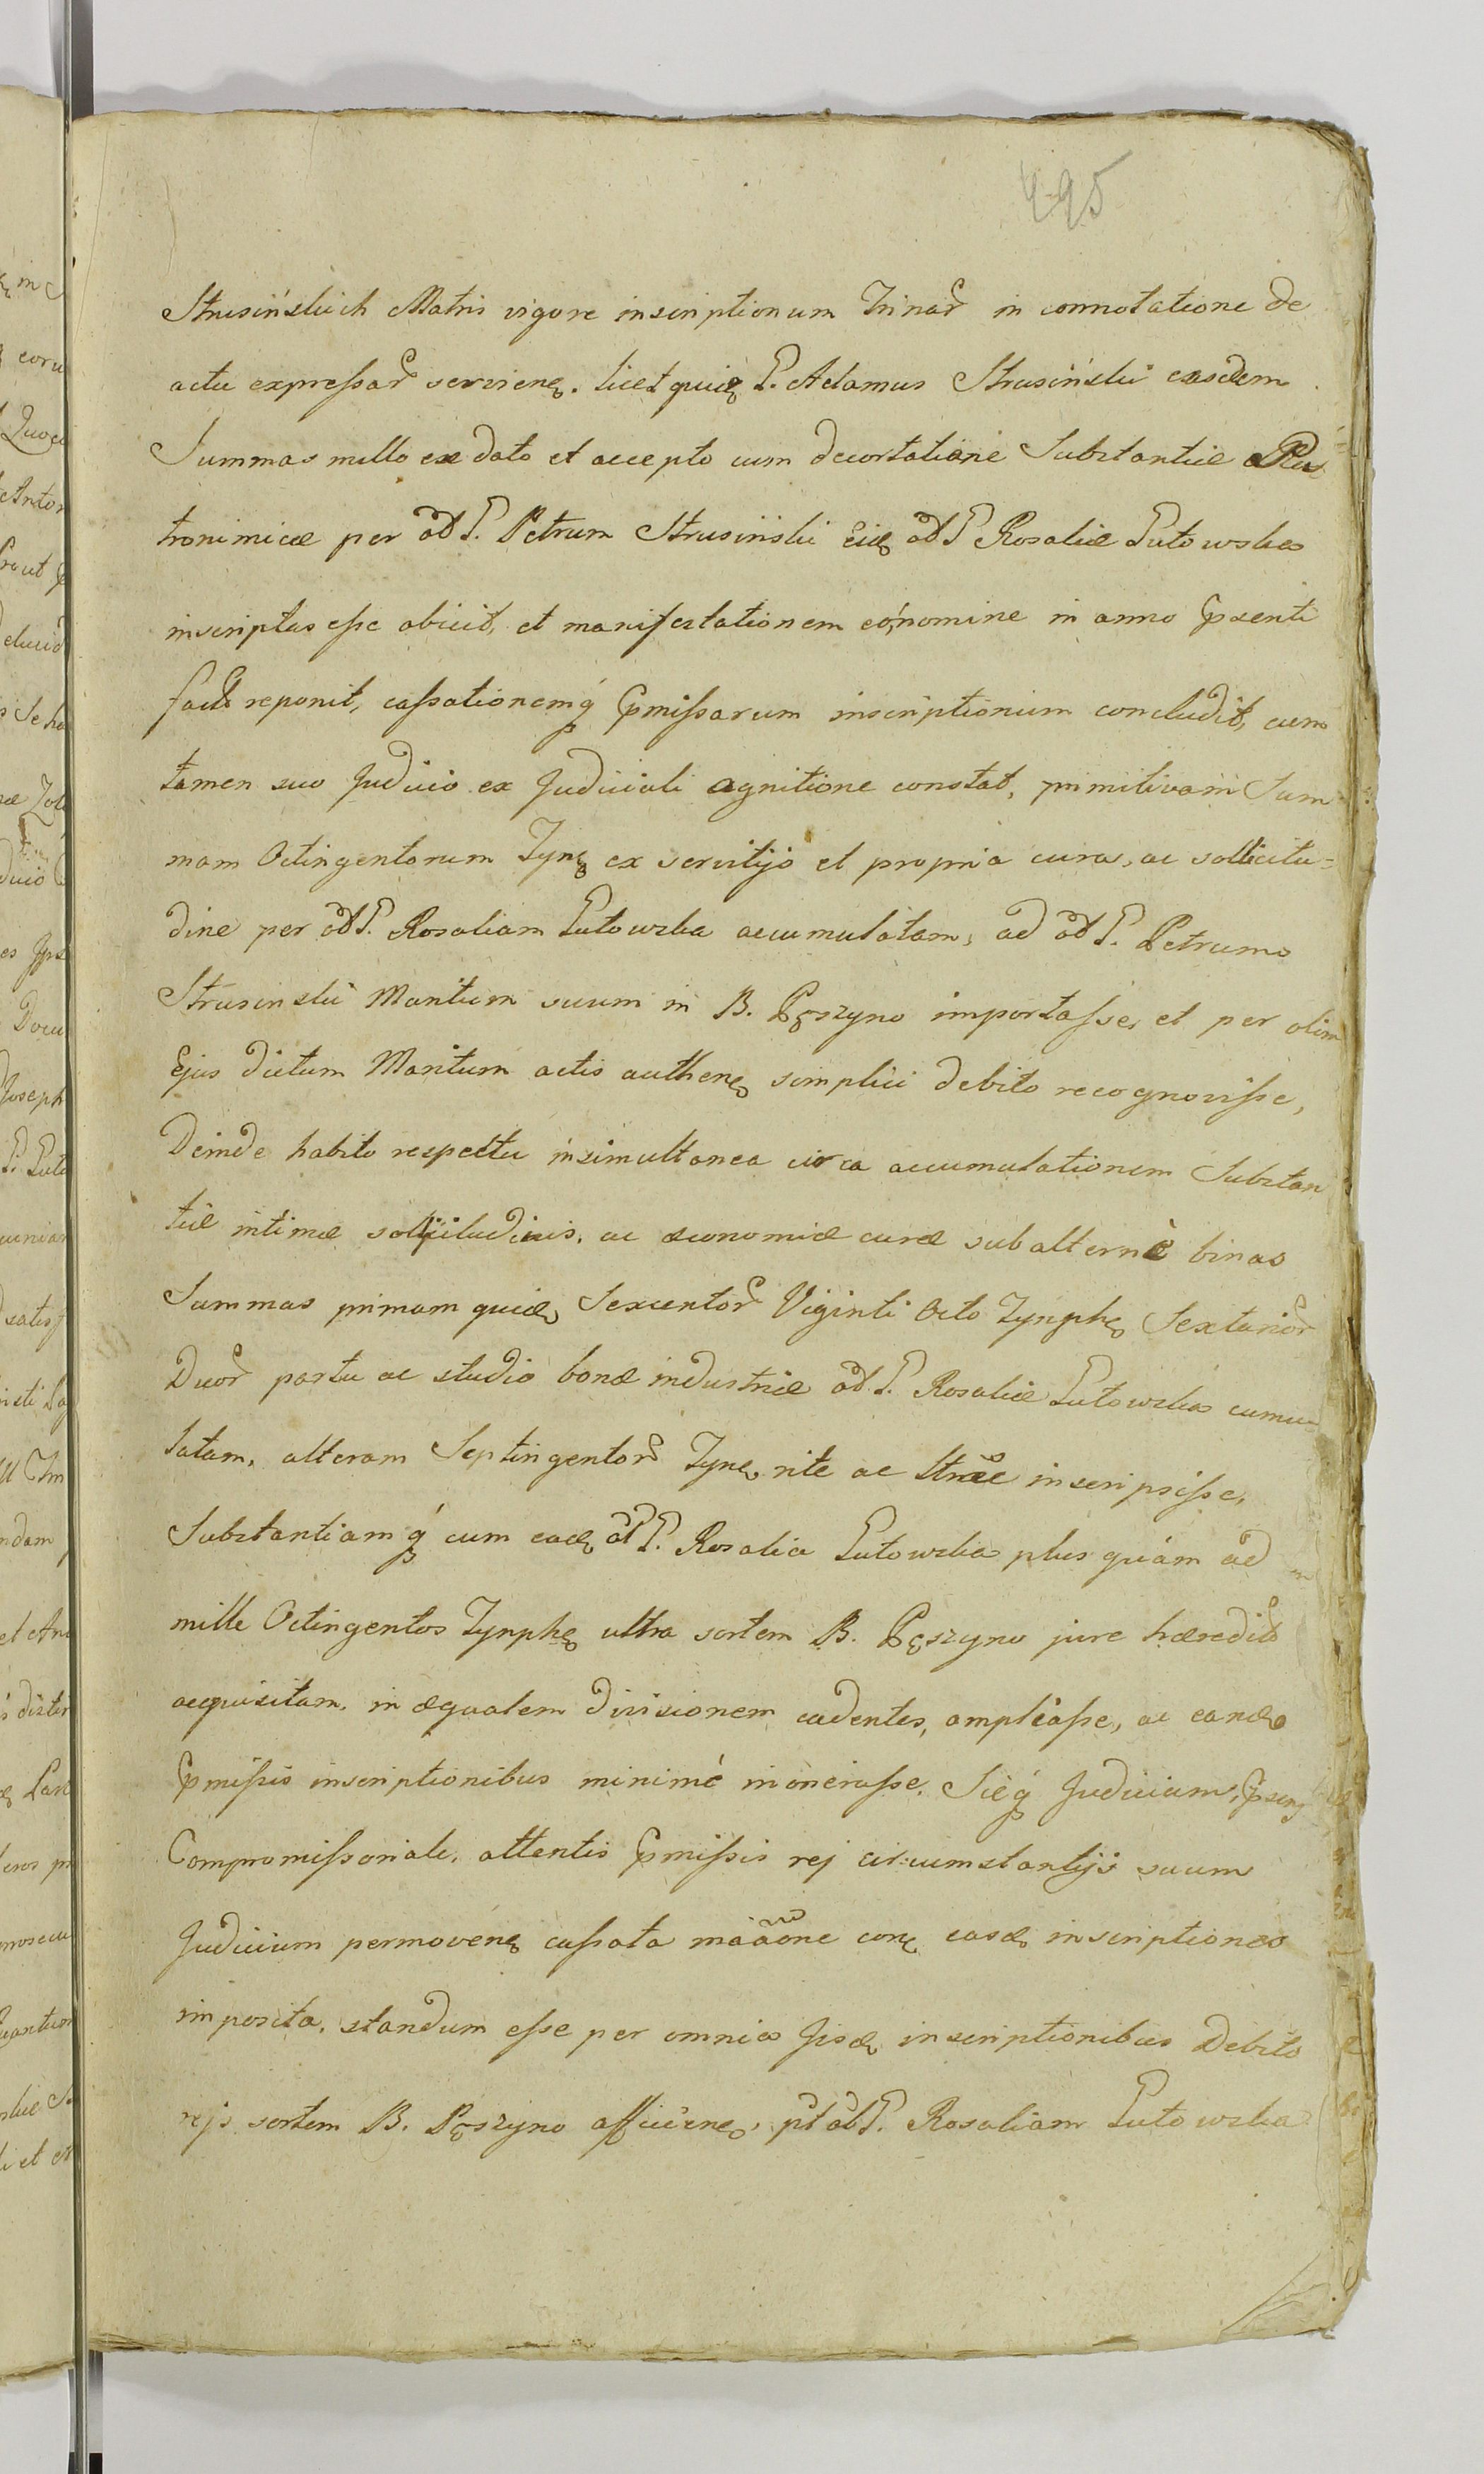 495
Strusińskich Matris vigore inscriptionum Trinar in connotatione de
actu expressar servieng. licet quid P. Adamus Strusiński easdem
Summas nullo ex dato et accepto cum decortatione Substantiæ Pa
tronimicæ per od P. Petrum Strusiński Eid od P Rosaliæ Putowska
inscriptas esse obicit, et manifestationem eo nomine in anno Pszenti
fact reponit, cassationemq Pmissarum inscriptionum concludit, cum
tamen suo Judicio ex Judiciali agnitione constat, primitivam Sum
mam Octingentorum Tyn ex servitijo et propria cura, ac sollicitu=
dine per od P. Rosaliam Putowska accumulatam, ad od P. Petrum
Strusinski Maritum suum in B. Pęszyno importasse, et per olim
Ejus dictum Maritum actis authen simplici debito recognovisse,
Deinde habito respectu insimultanea circa accumulationem Substan
tiæ intimæ sollicitudinis, ac œconomiæ curæ subalternè binas
Summas primam quid Sexcentor Viginti Octo Tymph Sextarior
Duor partu ac studio bonæ industriæ od P. Rosaliæ Putowska cumu
latam, alteram Septingentor Tyn rite ac Ittæ inscripsisse,
Substantiamq cum ead od P. Rosalia Putowska plus quám ad
mille Octingentos Tymph ultra sortem B. Pęszyno jure hæredit
acquisitam, in æqualem divisionem cadentes, ampliasse, ac eand
Pmissis inscriptionibus minimé inonerasse. Sicq Judicium, Pszens
Compromissoriale, attentis Pmissis rej circumstantijs suum
Judicium permoven cassata maaone con easd inscriptiones
imposita, standum esse per omnia Jisd inscriptionibus Debito
rijs sortem B. Pęszyno afficien, pt od P. Rosaliam Putowska